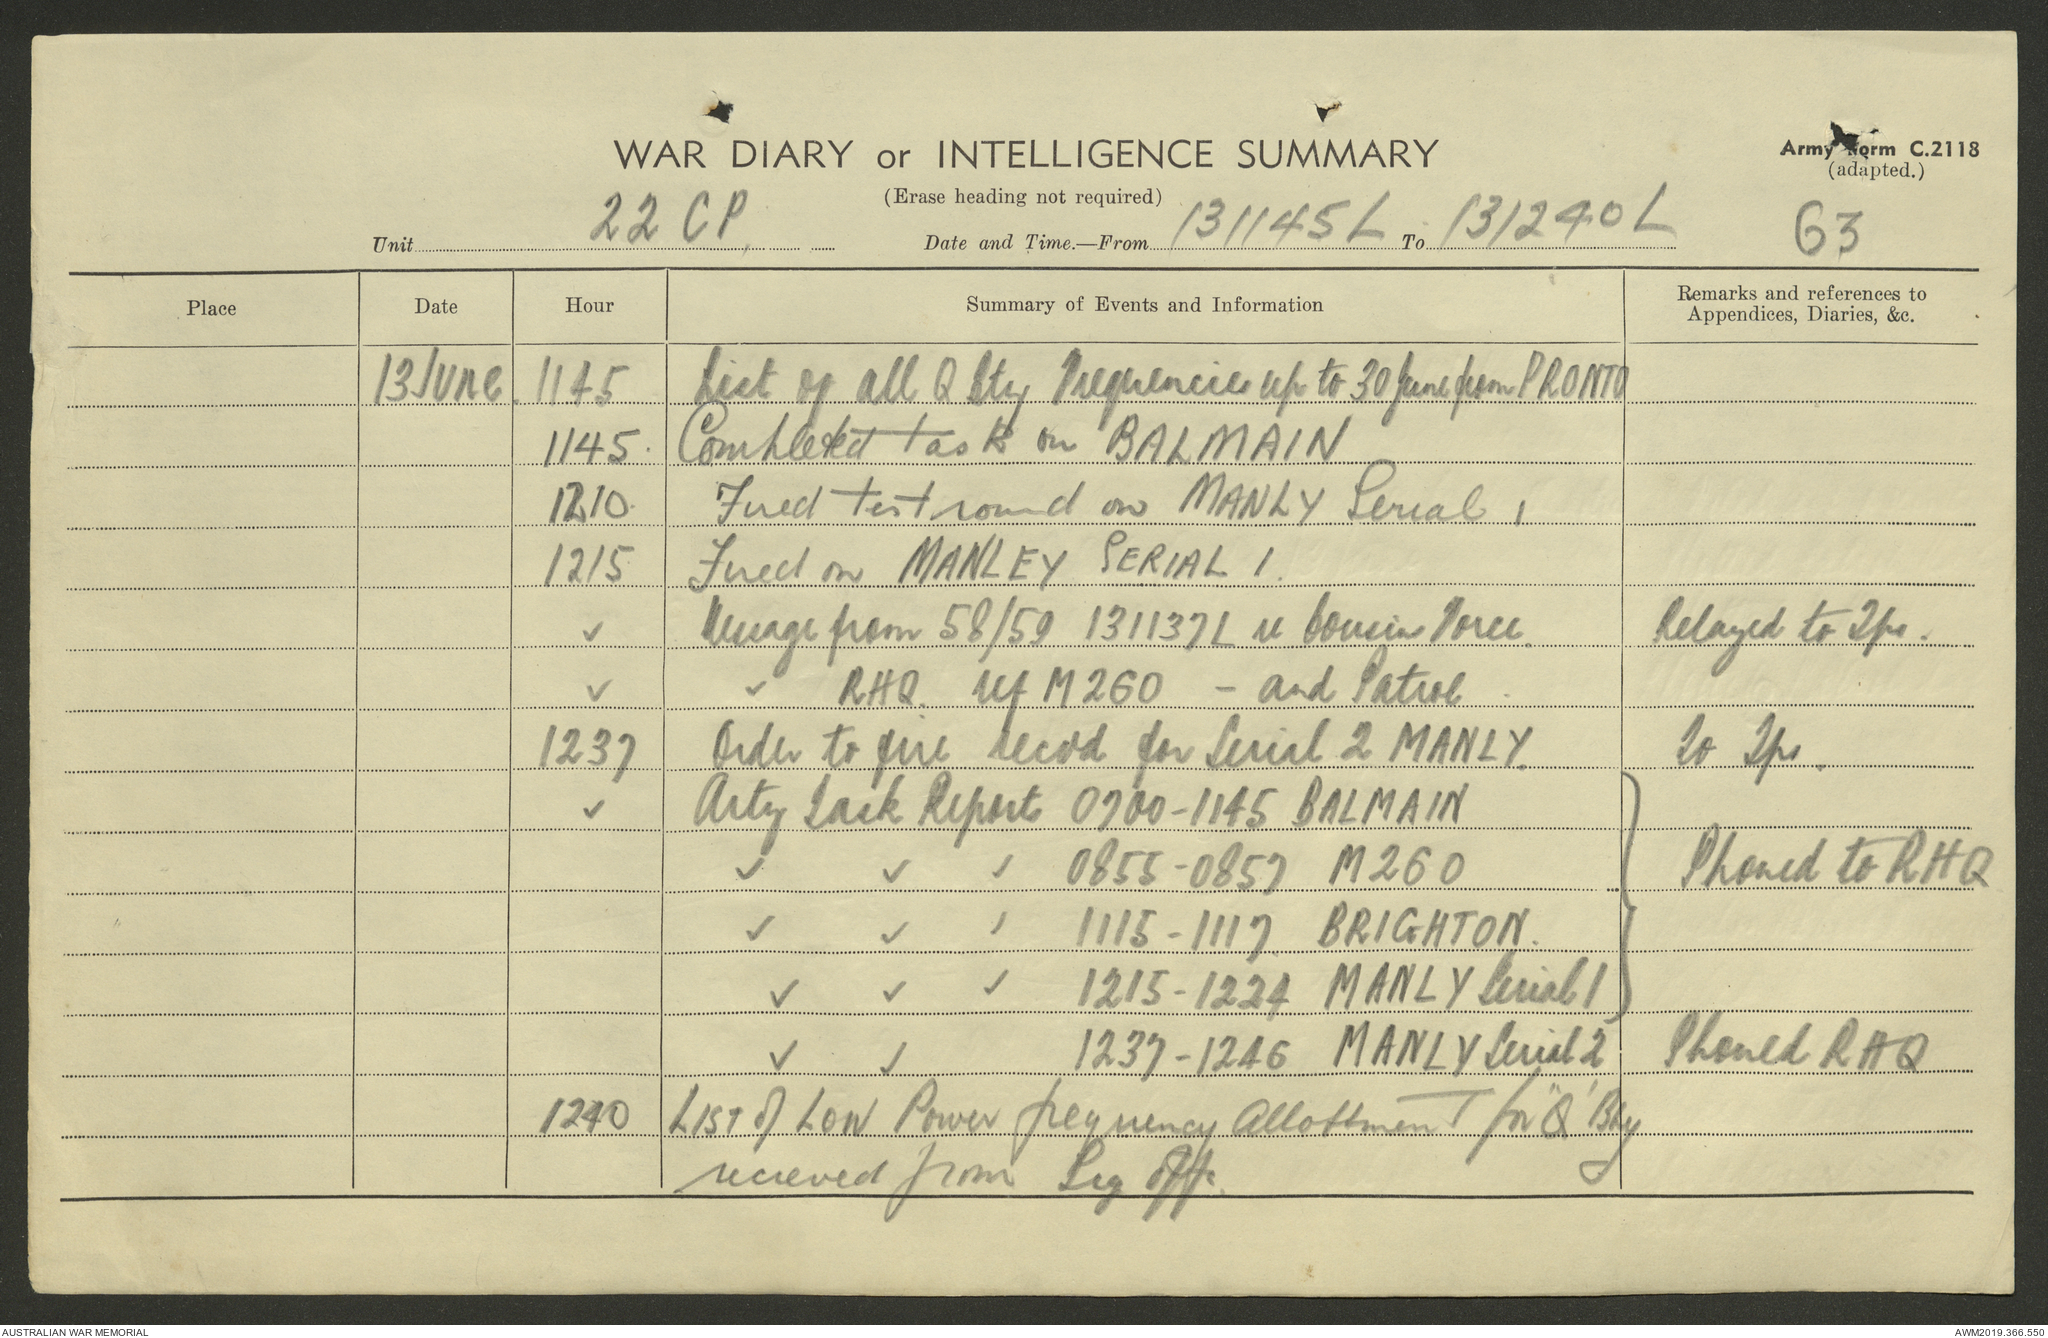 WAR DIARY or INTELLIGENCE SUMMARY
Army Form C.2118
(adapted.)
(Erase heading not required)
63
Unit 22 CP. Date and Time.—From 131145L To 131240L
Place Date Hour Summary of Events and Information Remarks and references to Appendices, Diaries, &c.
13 June. 1145 List of all Q Bty Frequencies up to 30 June from PRONTO
1145. Completed task on BALMAIN
1210. Fired test round on MANLY Serial 1
1215 Fired on MANLEY SERIAL 1.
✓ Message from 58/59 131137L re Cousins Force. Relayed to Tps.
✓ ✓ RHQ. ref M260 - and Patrol
1237 Order to fire record for Serial 2 MANLY. To Tps.
✓ Arty Task Reports 0700-1145 BALMAIN
✓ ✓ ✓ 0855-0857 M260 Phoned to RHQ
✓ ✓ ✓ 1115-1117 BRIGHTON.
✓ ✓ ✓ 1215-1224 MANLY Serial 1
✓ ✓ 1237-1246 MANLY Serial 2 Phoned RHQ
1240 LIST of Low Power frequency Allottment for "Q" Bty
recieved from Sig Off.
AUSTRALIAN WAR MEMORIAL
AWM2019.366.550